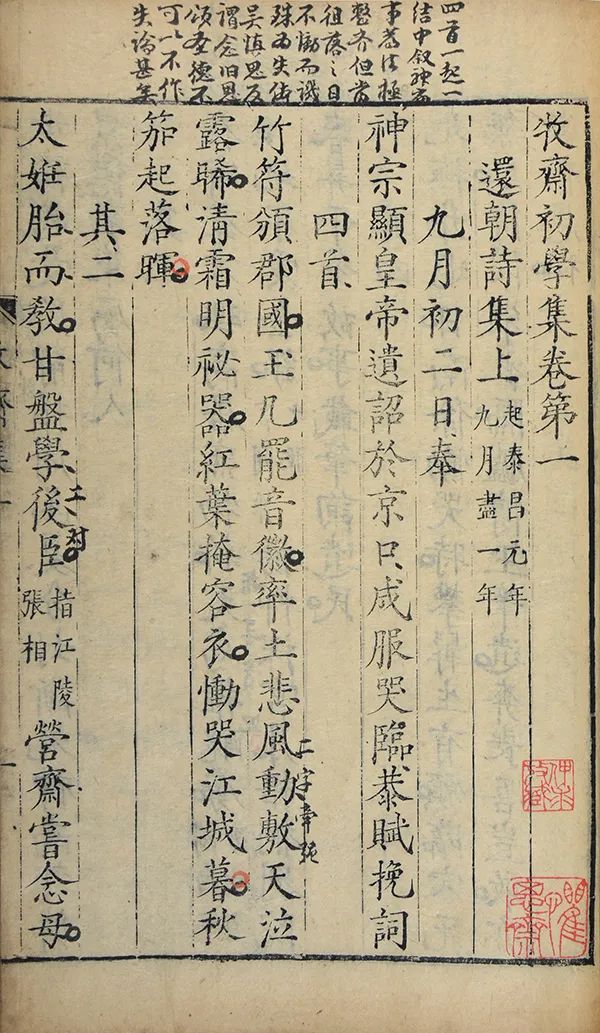 四首一起一
結中叙神宗
事
整齊但首
徂落之日
不慟而
殊为失体
吳慎思反
謂念旧恩
頌圣德不
可以不作
失論甚矣
牧齋初學集卷第一
還朝詩集上 起泰昌元年
九月盡一年
九月初二日奉
神宗顯皇帝遺詔於京口成服哭臨恭賦挽詞
四首
竹符頒郡國玉几罷音徽率土悲風動敷天泣
二字牽强
露晞清霜明祕器紅葉掩容衣慟哭江城暮秋
笳起落暉
其二
太姙胎而教甘盤學後臣 指江陵
張相 營齋嘗念母
工对